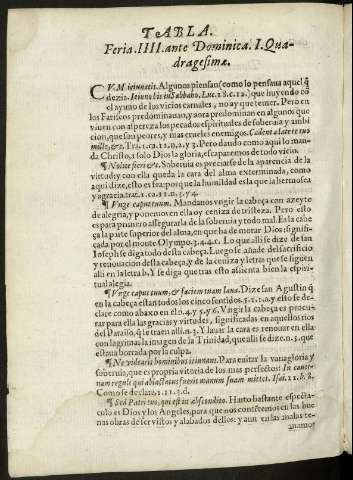 TABLA.
Feria. IIII. ante Dominica. I. Qua-
dragesimæ.
CVM ieiunatis. Algunos piensan (como lo pensaua aquel q̃
dezia. Ieiuno bis in Sabbato. Luc. 18. c. 12.) que huyendo cõ
el ayuno de los vicios carnales, no ay que temer. Pero en
los Fariseos predominauan, y aora predominan en algunos que
viuen con aspereza los pecados espirituales de soberuia y ambi
cion, que son peores, y mas crueles enemigos. Cadent a latere tuo
mille, &c. Tra. 1. c. 1. n. 2. y 3. Pero dando como aqui lo man-
da Christo, a solo Dios la gloria, escaparemos de todo vicio.
¶ Nolite fieri &c. Soberuia es preciarse de la aparencia de la vir-
tud, y con ella queda la cara del alma exterminada, como
aqui dize, esto es fea: porque la humildad es la que ia hermosea
y agracia. trac. 1. c. 1. n. 3. y 4.
¶ Vnge caput tuum. Mandanos vngir la cabeça con azeyte
de alegria, y ponemos en ella oy ceniza de tristeza. Pero esto
es para primero assegurarla de la soberuia y todo mal. Es la cabe
ça la parte superior del alma, en que ha de morar Dios: signifi-
cada por el monte Olympo. 3. 4. 4. c. Lo que alli se dize de san
Ioseph se diga todo desta cabeça. Luego se añade del sacrificio
y renouacion desta cabeça, y de la ceniza y letras que se siguẽ
alli en la letra b. Y se diga que tras esto assienta bien la espiri-
tual alegia.
¶ Vnge caput tuum, & faciem tuam laua. Dize san Agustin q̃
en la cabeça estan todos los cinco sentidos. 5. 1. 1. 0. y esto se de-
clare como abaxo en el 0. 4. y 5. y 6. Vngir la cabeça es procu-
rar para ella las gracias y virtudes, significadas en aquellos rios
del Paraiso, q̃ se traen alli. n. 3. Y lauar la cara es renouar en ella
con lagrimas la imagen de la Trinidad, que alli se dize. n. 5. que
estaua borrada por la culpa.
¶ Ne videaris hominibus ieiunans. Para euitar la vanagloria y
soberuia, que es propria vitoria de los mas perfectos: In cauer-
nam reguli qui ablactatus fuerit manum suam mittet. Isai. 11. b. 8.
Como se declara, 1. 1. 3. d.
¶ Sed Patri tuo, qui est in abscondito. Harto bastante especta-
culo es Dios y los Angeles, para que nos contentemos en las bue
nas obras de ser vistos y alabados dellos: y aun en las malas te-
mamos